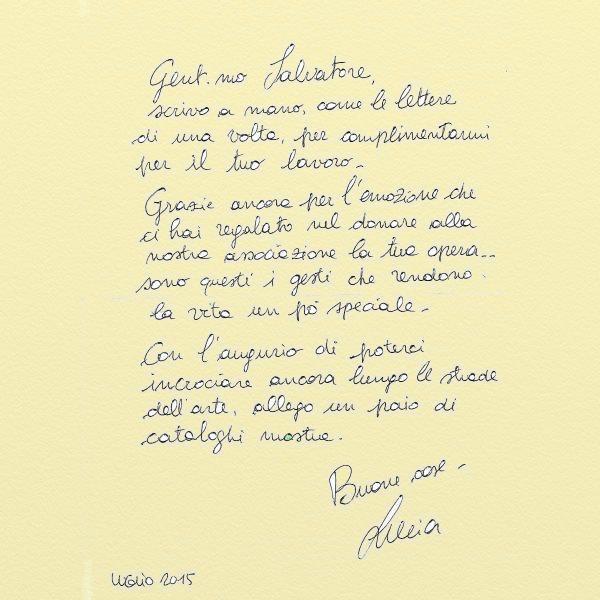 Gent.mo Salvatore,
scrivo a mano, come le lettere
di una volta, per complimentarmi
per il tuo lavoro.
Grazie ancora per l'emozione che
ci hai regalato nel donare alla
nostra associazione la tua opera..
sono questi i gesti che rendono
la vita un pò speciale.
Con l'augurio di poterci
incrociare ancora lungo le strade
dell'arte, allego un paio di
cataloghi mostra.
Buone cose -
Lucia
luglio 2015